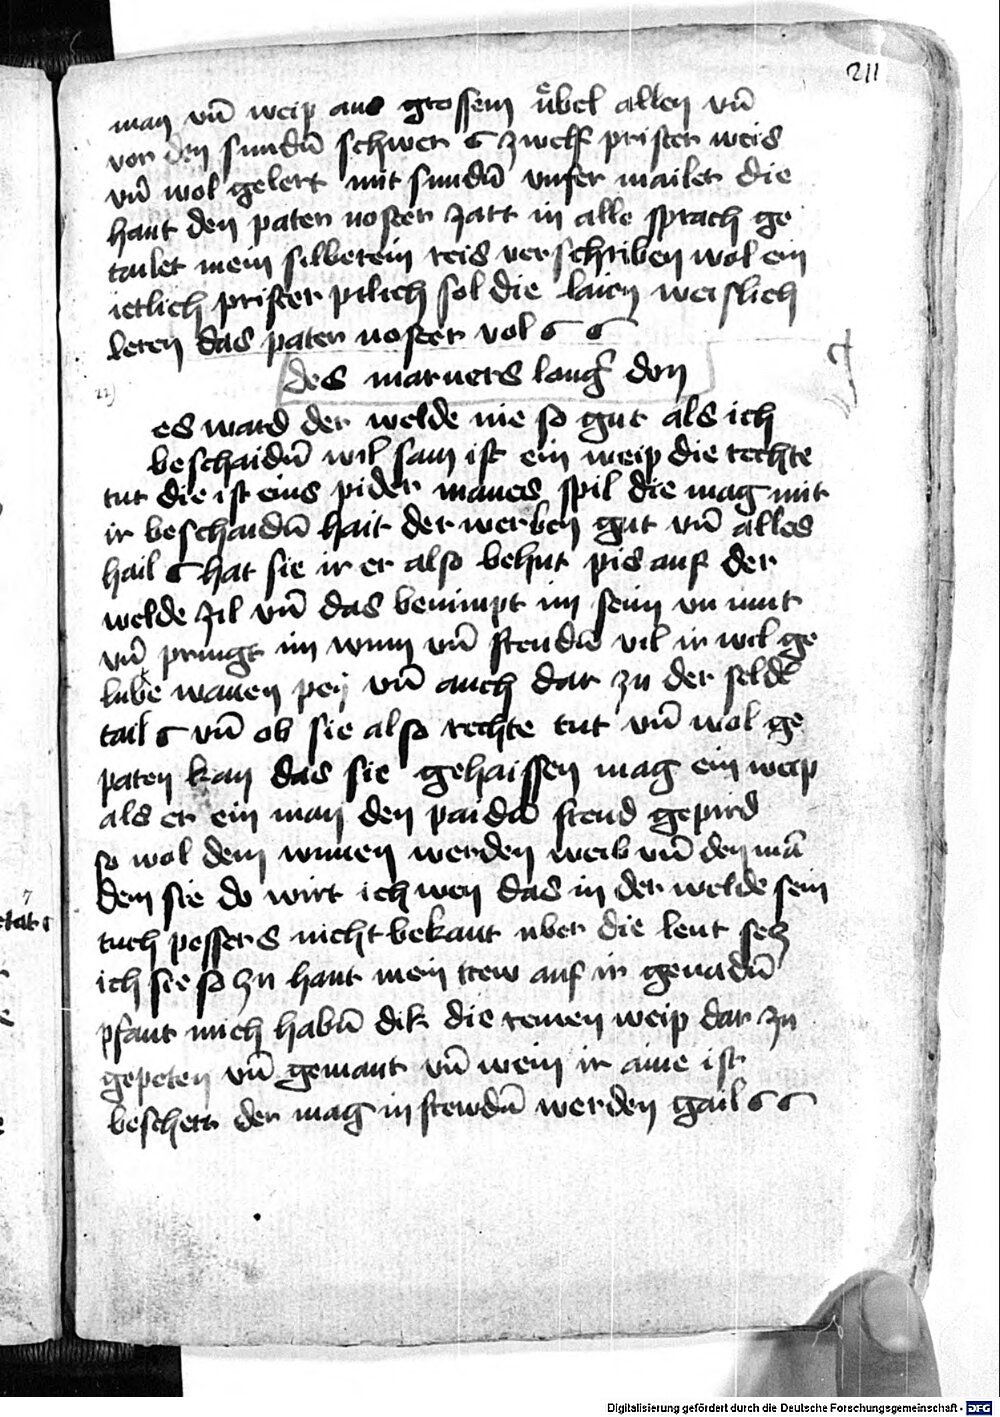 211
man vn̄ weip aus grossem uͤbel allen vn̄
vor den sundn̄ schwer ϭ zwelf prister weis
vn̄ wol gelert mit sundn̄ vnser mailet die
hant den pater noster zart in alle sprach ge
tailet mein silberein reis verschriben wol ein
ietlich prister pilich sol die laien weislich
leren das pater noster vol ϭ ϭ
des marners langē don
es ward der welde nie so gut als ich
beschaidn̄ wil sam ist ein weip die rechte
tut die ist eins pider manes spil die mag mit
ir beschaidn̄ hait der werben gut vn̄ alles
hail ϭ hat sie ir er also behut pis auf der
welde zil vn̄ das benimpt im sein vn mut
vn̄ pringt im wun vn̄ freudn̄ vil ir wil ge
lube wanen pey vn̄ auch dar zu der seldē
tail ϭ vn̄ ob sie also rechte tut vn̄ wol ge
paren kan das sie gehaissen mag ein weip
als er ein man den paidn̄ freud gepird
so wol dem wunen werden weib vn̄ den mā
dem sie do wirt ich wen das in der welde sein
tuch pessers nicht bekant uber die leut sech
ich sie so zu hant mein trew auf ir genadn̄
pfant mich habn̄ dik die reinen weip dar zu
gepeten vn̄ gemant vn̄ wem ir aine ist
beschert der mag in frewdn̄ werden gail ϭ ϭ
Digitalisierung gefördert durch die Deutsche Forschungsgemeinschaft - DFG